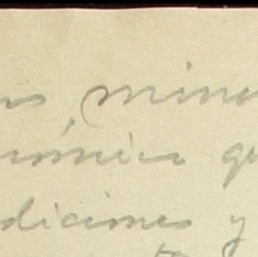 ns, mine
nómica qu
diciones y